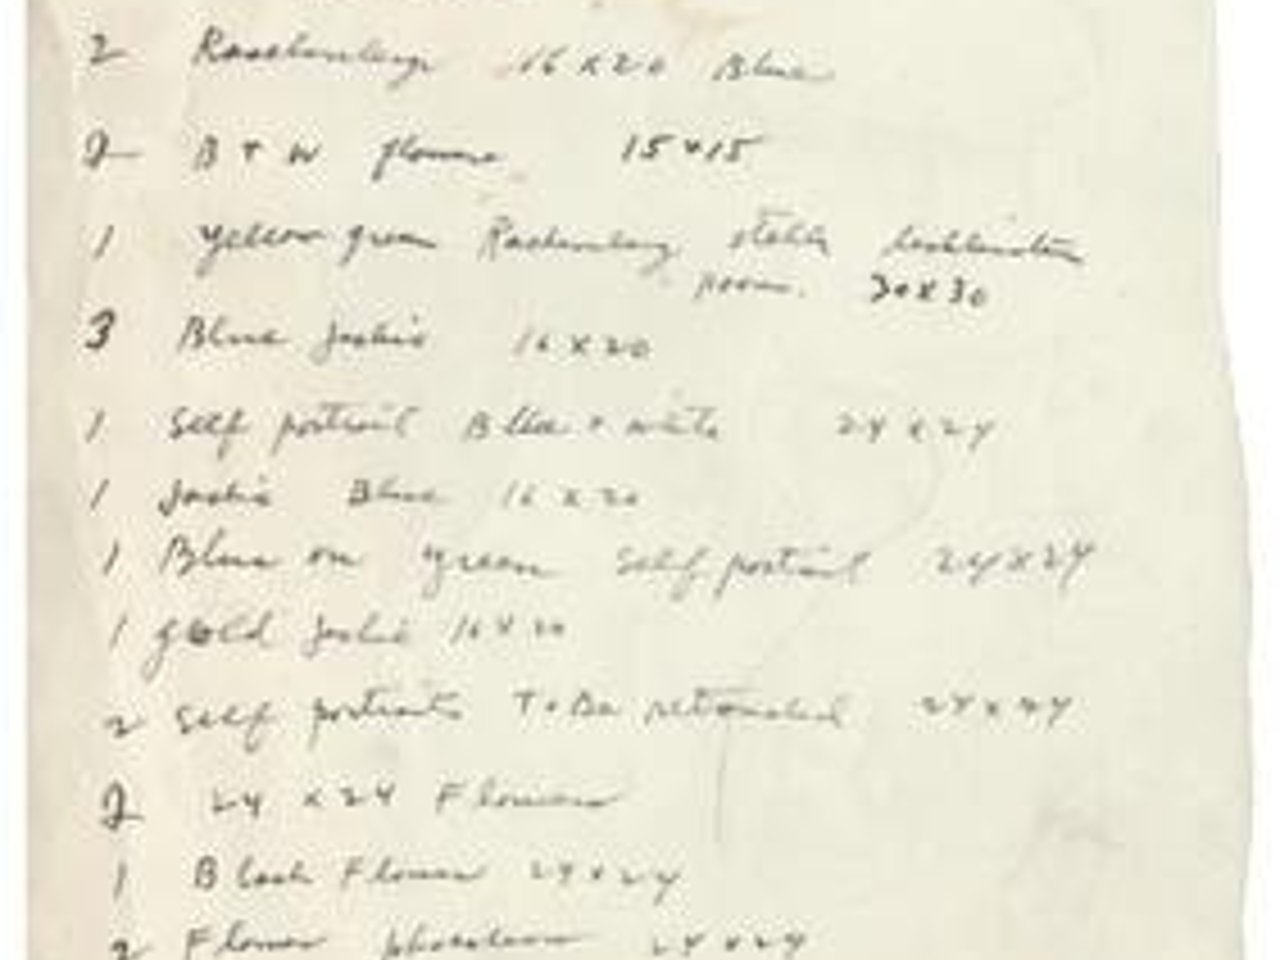 2 Rauschenberg 16 x 20 Blue
2 B + W flowers 15 x 15
1 Yellow green Rauschenberg
room. 30 x 30
3 Blue Jackie 16 x 20
1 Self portrait Blue + white 24 x 24
1 Jackie Blue 16 x 20
1 Blue on green Self portrait 24 x 24
1 gold Jackie 16 x 20
2 Self portraits To Be retouched 24 x 24
2 24 x 24 Flowers
1 Black Flower 24 x 24
2 Flower 24 x 24